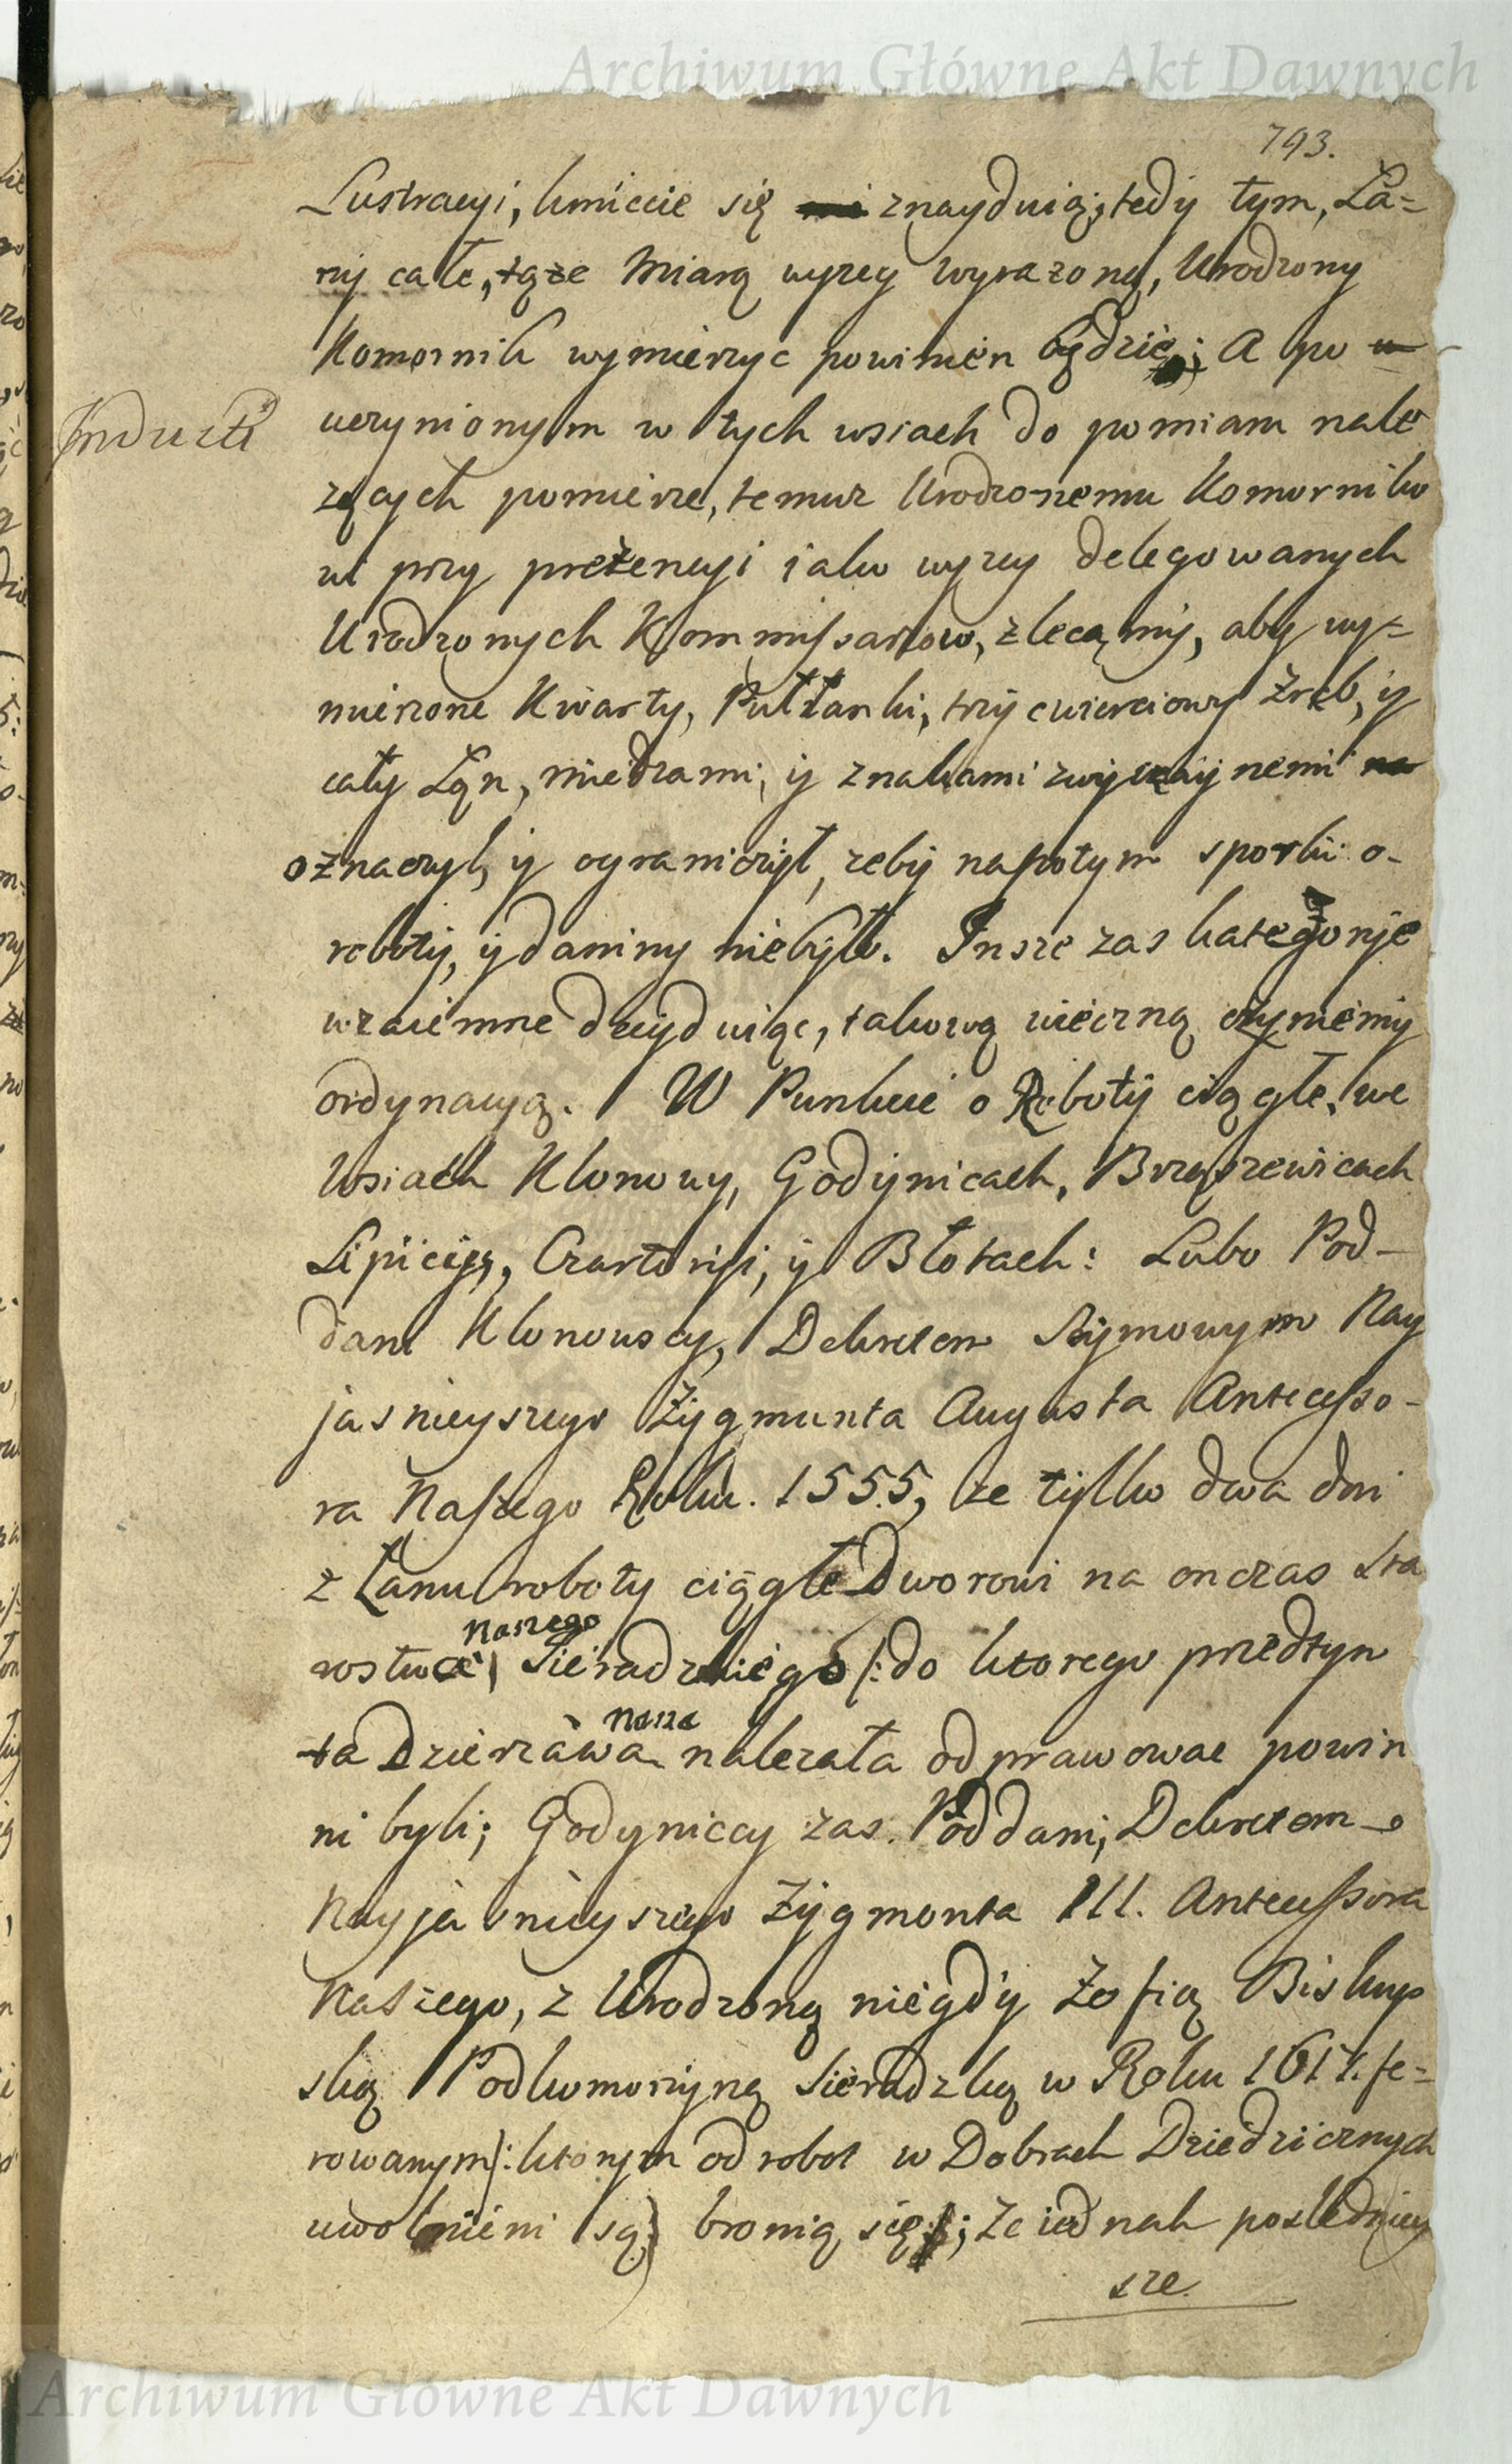 Archiwum Główne Akt Dawnych
793.
Lustracyi, kmiecie się znayduią, tedy tym, Ła=
ny całe, tąże Miarą wyzey wyrazoną, Urodzony
Komornik wymierzyc powinien będzie; A po
Inducta
uczynionym w tych wsiach do pomiaru nale
zących pomierze, temuz Urodzonemu Komorniko
wi przy prezencyi iako wyzey delegowanych
Urodzonych Kommissarzow, zlecamy, aby wy=
mierzone Kwarty, Pułłanki, trzycwierciowy Zreb, y
cały Łąn, miedzami, y znakami zwyczaynemi
oznaczył, y ograniczył, zeby napotym sporki o-
roboty, y daniny niebyło. Insze zas kategorye
wzaiemne decyduiąc, takową wieczną czyniemy
ordynacyą. W Punkcie o Roboty ciągłe, we
Wsiach Klonowy, Godynicach, Brąszewicach
Lipiciey, Czartoryi, y Błotach: Lubo Pod-
dani Klonowscy, Dekretem Seymowym Nay
jasnieyszego Zygmunta Augusta Antecesso-
ra Naszego Roku. 1555, ze tylko dwa dni
z Łanu roboty ciągłe Dworowi na onczas Sta
Naszego
rostwa Sieradzkiego /: do ktorego przedtym
Nasza
ta Dzierzawa nalezała odprawowac powin
ni byli; Godyniccy zas. Poddani, Dekretem
Nayjasnieyszego Zygmonta III. Antecessora
Naszego, z Urodzoną niegdy Zofią Biskup
ską Podkomorzyną Sieradzką w Roku 1617. fe=
rowanym /: ktorym od robot w Dobrach Dziedzicznych
uwolnieni są :/ bronią się; ze iednak posledniey
sze
Archiwum Główne Akt Dawnych